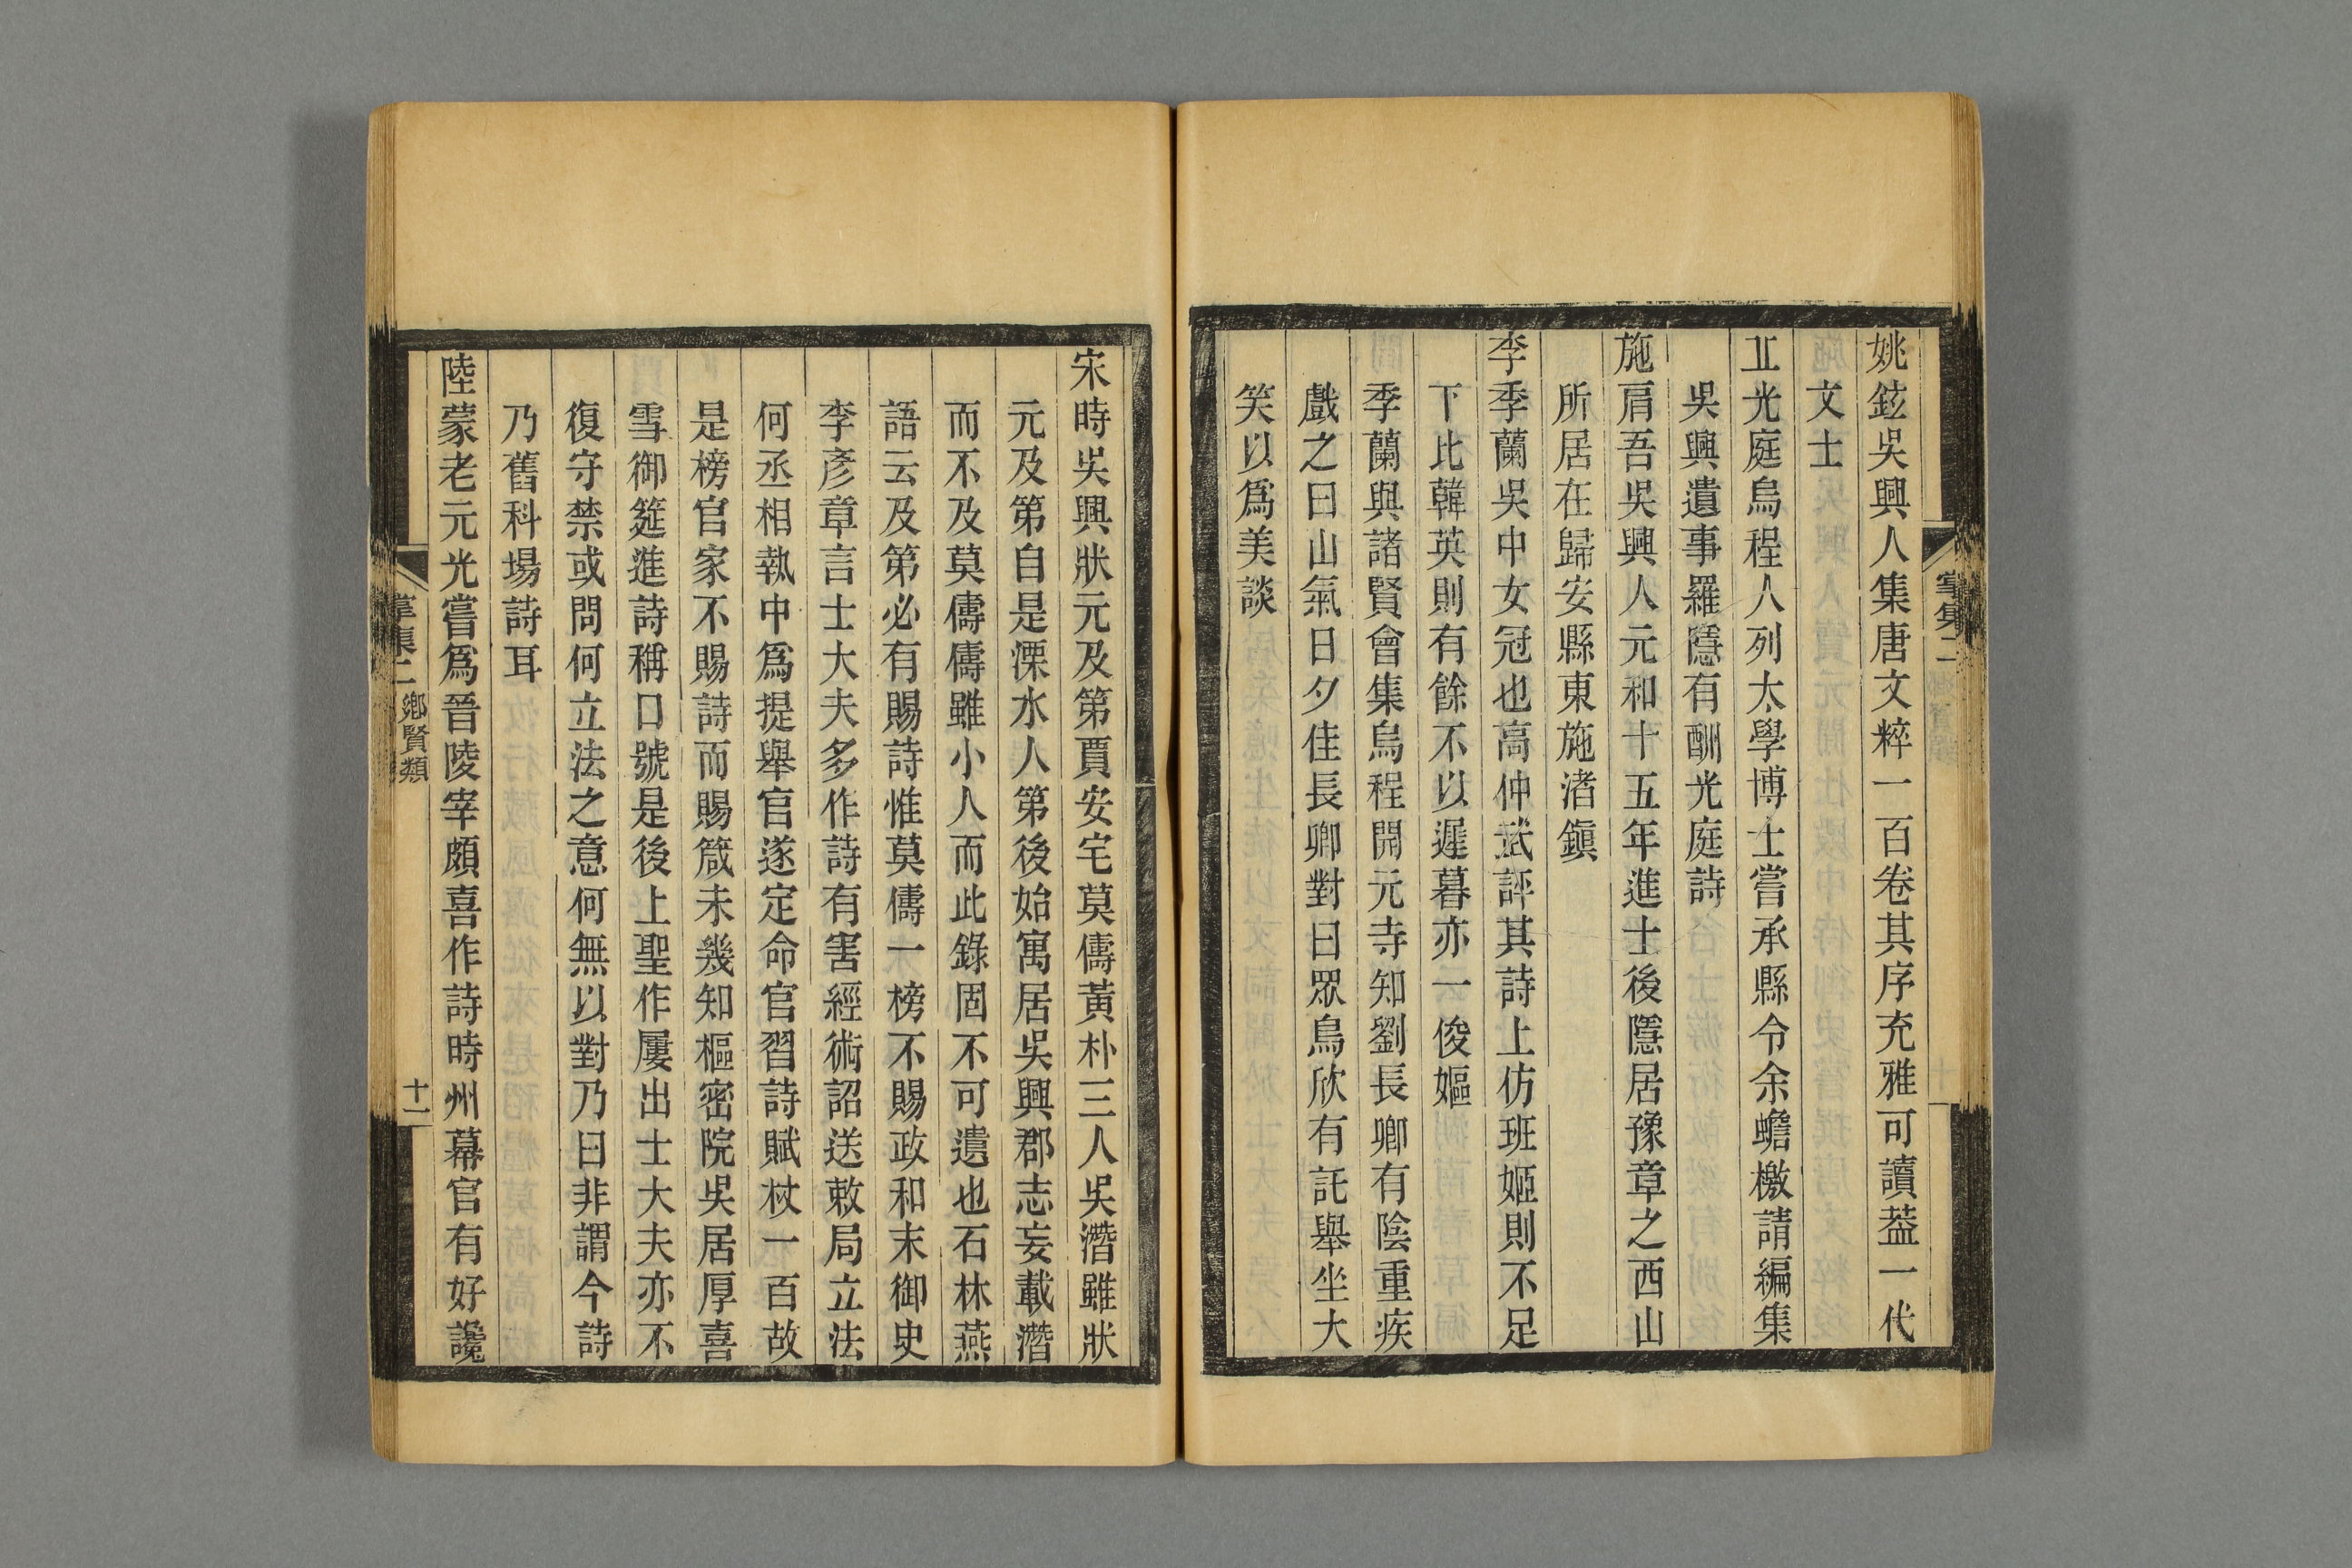 姚鉉吳興人集唐文粹一百卷其序充雅可讀葢一代
文士
丠光庭烏程人列太學博士嘗承縣令余蟾檄請編集
吳興遺事羅隱有酬光庭詩
施肩吾吳興人元和十五年進士後隱居豫章之西山
所居在歸安縣東施渚鎭
李季蘭吳中女冠也高仲武評其詩上仿班姬則不足
下比韓英則有餘不以遲暮亦一俊嫗
季蘭與諸賢會集烏程開元寺知劉長卿有陰重疾
戲之曰山氣日夕佳長卿對曰眾鳥欣有託舉坐大
笑以爲美談
宋時吳興狀元及第賈安宅莫儔黃朴三人吳潛雖狀
元及第自是溧水人第後始寓居吳興郡志妄載潛
而不及莫儔儔雖小人而此錄固不可遺也石林燕
語云及第必有賜詩惟莫儔一榜不賜政和末御史
李彥章言士大夫多作詩有害經術詔送敕局立法
何丞相執中爲提舉官遂定命官習詩賦杖一百故
是榜官家不賜詩而賜箴未幾知樞密院吳居厚喜
雪御筵進詩稱口號是後上聖作屢出士大夫亦不
復守禁或問何立法之意何無以對乃曰非謂今詩
乃舊科場詩耳
陸蒙老元光嘗爲晉陵宰頗喜作詩時州幕官有好讒
掌集二
鄉賢類
十一